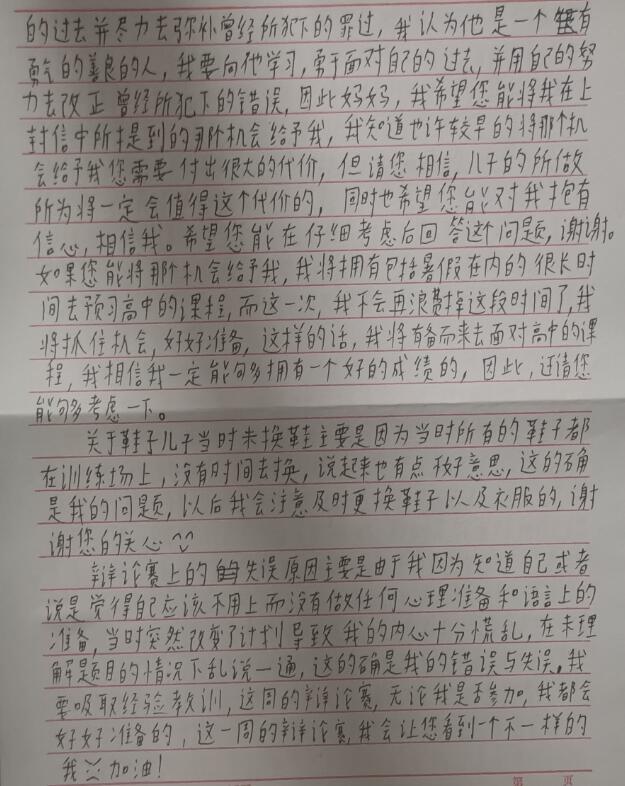 的过去并尽力去弥补曾经所犯下的罪过，我认为他是一个有
勇气的善良的人，我要向他学习，勇于面对自己的过去，并用自己的努
力去改正曾经所犯下的错误，因此妈妈，我希望您能将我在上
封信中所提到的那个机会给予我，我知道也许较早的将那个机
会给予我您需要付出很大的代价，但请您相信，儿子的所做
所为将一定会值得这个代价的，同时也希望您能对我抱有
信心，相信我。希望您能在仔细考虑后回答这个问题，谢谢。
如果您能将那个机会给予我，我将拥有包括暑假在内的很长时
间去预习高中的课程，而这一次，我不会再浪费掉这段时间了，我
将抓住机会，好好准备，这样的话，我将有备而来去面对高中的课
程，我相信我一定能够多拥有一个好的成绩的，因此，还请您
能够多考虑一下。
关于鞋子儿子当时未换鞋主要是因为当时所有的鞋子都
在训练场上，没有时间去换，说起来也有点不好意思，这的确
是我的问题，以后我会注意及时更换鞋子以及衣服的，谢
谢您的关心^^
辩论赛上的失误原因主要是由于我因为知道自己或者
说是觉得自己应该不用上而没有做任何心理准备和语言上的
准备，当时突然改变了计划导致我的内心十分慌乱，在未理
解题目的情况下乱说一通，这的确是我的错误与失误，我
要吸取经验教训，这周的辩论赛，无论我是否参加，我都会
好好准备的，这一周的辩论赛，我会让您看到一个不一样的
我 加油！
第 页